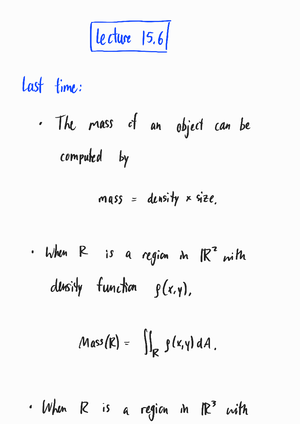 Lecture 15.6
Last time:
• The mass of an object can be
computed by
mass = density × size.
• When R is a region in ℝ² with
density function ρ(x,y),
Mass(R) = ∬_R ρ(x,y) dA.
• When R is a region in ℝ³ with